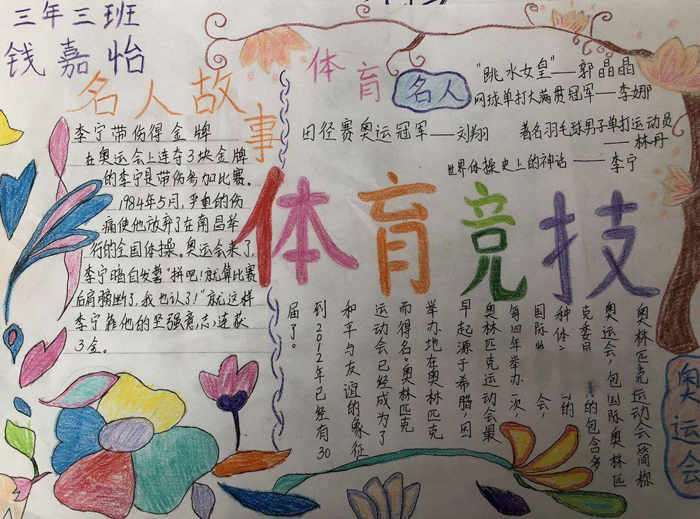 三年三班
钱嘉怡
名人故事
李宁带伤得金牌
在奥运会上连夺3块金牌
的李宁是带伤参加比赛.
1984年5月,严重的伤
痛使他放弃了在南昌举
行的全国体操。奥运会来了,
李宁暗自发誓"拼吧!就算比赛
后肩膀断了,我也认了!"就这样
李宁靠他的坚强意志,连获
3金。
体育
名人
"跳水女皇"——郭晶晶
网球单打大满贯冠军——李娜
田径赛奥运冠军——刘翔
著名羽毛球男子单打运动员
——林丹
世界体操史上的神话——李宁
体育竞技
奥运会
奥林匹克运动会(简称
奥运会,包国际奥林匹
克委员的包含多
种体的
国际会
每四年举办一次,
奥林匹克运动会最
早起源于希腊,因
举办地在奥林匹克
而得名。奥林匹克
运动会已经成为了
和平与友谊的象征
到2012年已经有30
届了。